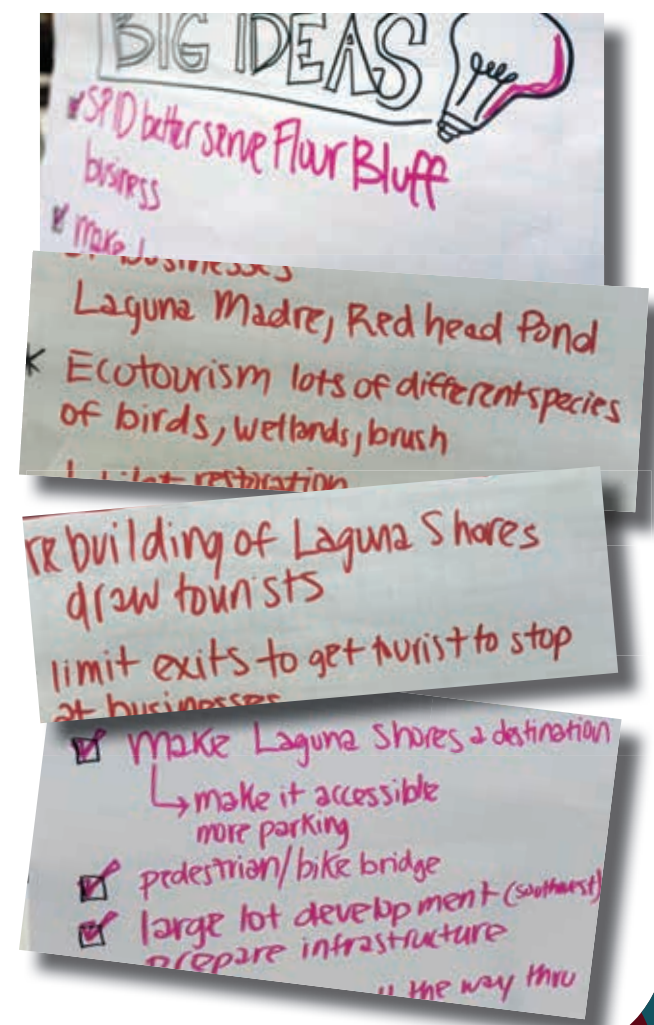 BIG IDEAS
SPID better serve Flour Bluff
business
make
of businesses
Laguna Madre, Red head Pond
Ecotourism lots of different species
of birds, wetlands, brush
restoration
rebuilding of Laguna Shores
draw tourists
limit exits to get turist to stop
at businesses
make Laguna Shores a destination
make it accessible
more parking
pedestrian/bike bridge
large lot development (southwest)
prepare infrastructure
the way thru